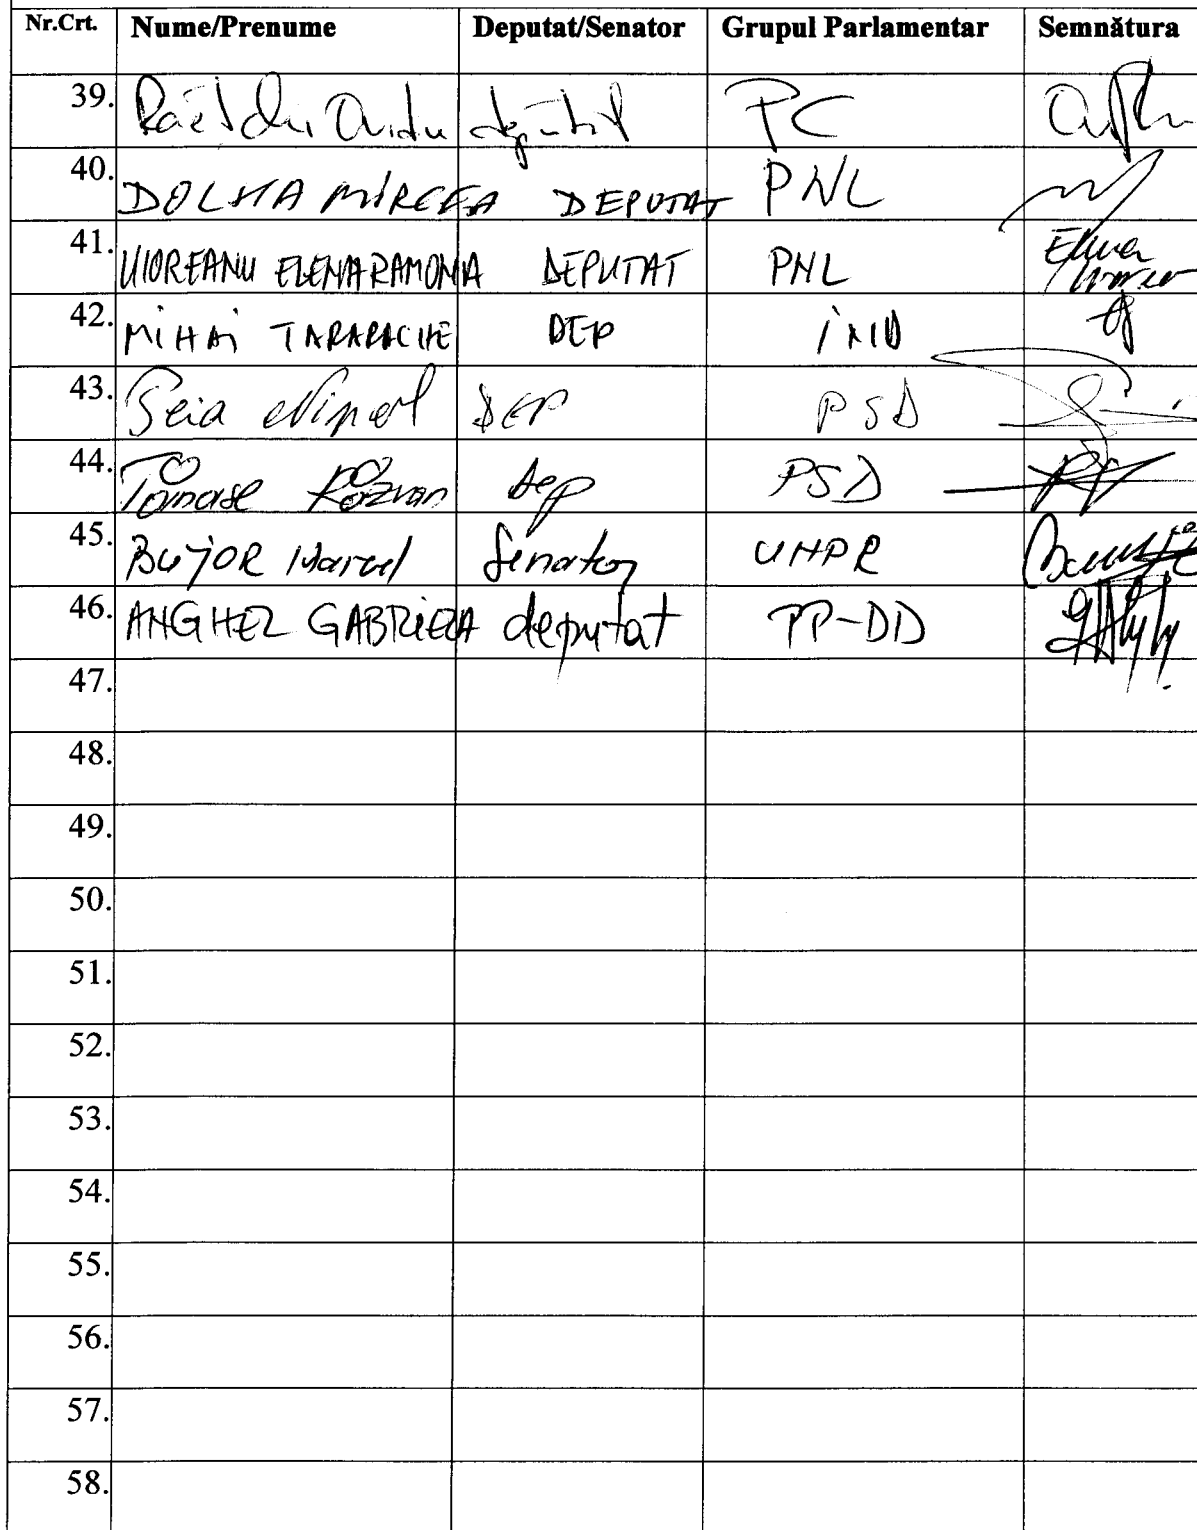 Nr.Crt. Nume/Prenume Deputat/Senator Grupul Parlamentar Semnătura
39. Raețchi Ovidiu deputat PC
40. DOLHA MIRCEA DEPUTAT PNL
41. UIOREANU ELENA RAMONA DEPUTAT PNL
42. MIHAI TARARACHE DEP IND
43. Seia Ninel DEP PSD
44. Tănase Răzvan Dep PSD
45. BUJOR Marcel Senator UNPR
46. ANGHEL GABRIELA deputat PP-DD
47.
48.
49.
50.
51.
52.
53.
54.
55.
56.
57.
58.